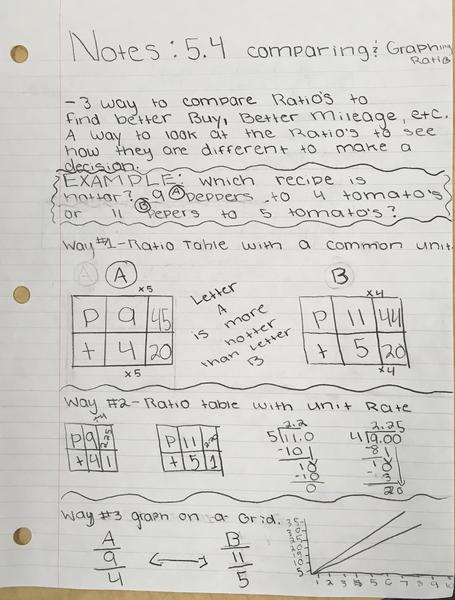 Notes: 5.4 comparing & Graphing
Ratios
- 3 way to compare Ratio's to
find better Buy, Better mileage, etc.
A way to look at the Ratio's to see
how they are different to make a
decision.
EXAMPLE: which recipe is
hotter? 9 peppers to 4 tomato's
A
or 11 Pepers to 5 tomato's?
B
Way #1 - Ratio Table with a common unit
A
x5
P 9 45
t 4 20
x5
Letter
A
is more
hotter
than Letter
B
B
x4
P 11 44
t 5 20
x4
Way #2 - Ratio table with unit Rate
P 9 2.25
t 4 1
P 11 2.2
t 5 1
2.2
5 11.0
-10
10
-10
0
2.25
4 9.00
-8
10
20
Way #3 graph on a Grid.
A
9
4
B
11
5
35
30
25
20
15
10
5
1 2 3 4 5 6 7 8 9 10